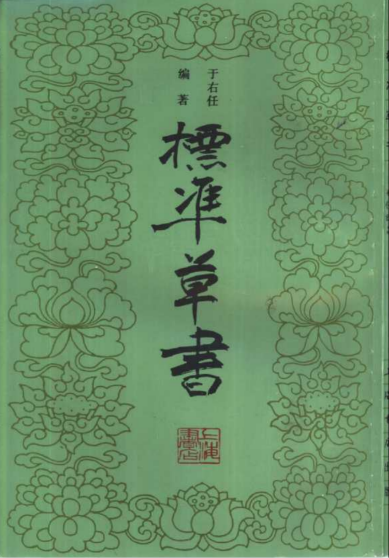 于右任
编著
標準草書
上海
書店